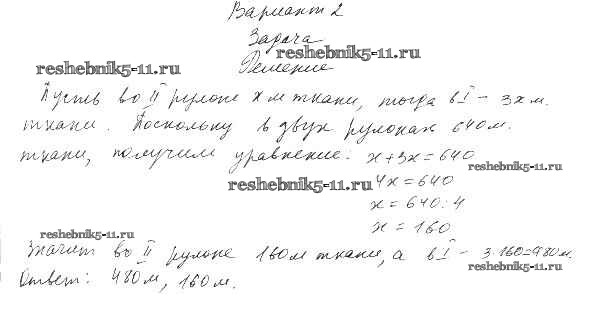 Вариант 2
Задача
reshebnik5-11.ru
reshebnik5-11.ru
Решение
Пусть во II рулоне x м ткани, тогда в I – 3x м.
ткани. Поскольку в двух рулонах 640 м.
ткани, получим уравнение: x+3x=640
reshebnik5-11.ru
4x=640
reshebnik5-11.ru
x=640:4
x=160
reshebnik5-11.ru
Значит во II рулоне 160 м ткани, а в I – 3·160=480 м.
reshebnik5-11.ru
Ответ: 480 м, 160 м.